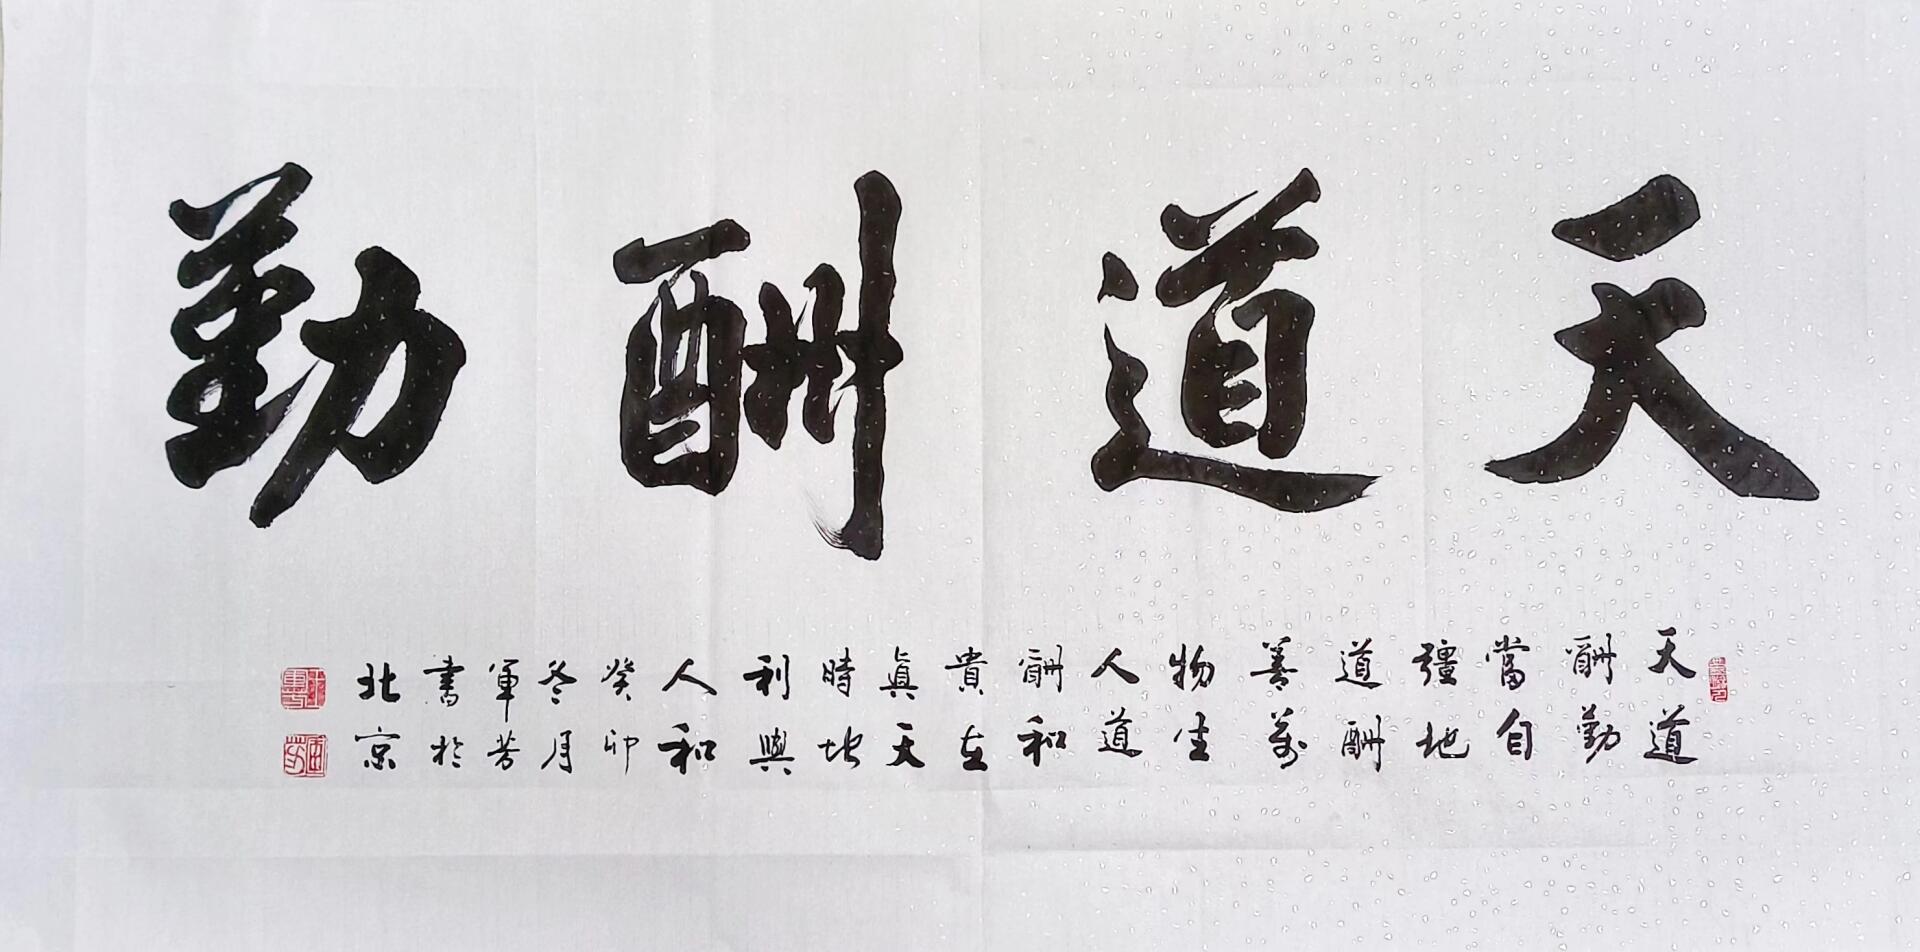 天道酬勤
天道
酬勤
當自
彊地
道酬
善萬
物生
人道
酬和
貴在
真天
時地
利與
人和
癸卯
冬月
軍芳
書於
北京